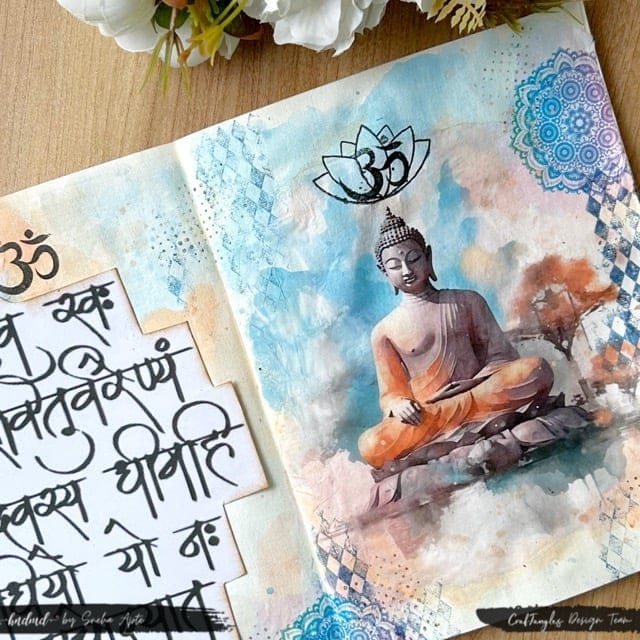 ॐ
ॐ
व स्वः
वितुर्वरेण्यं
वस्य धीमहि
धियो यो नः
-hndmd- by Sneha Apte
CrafTangles Design Team